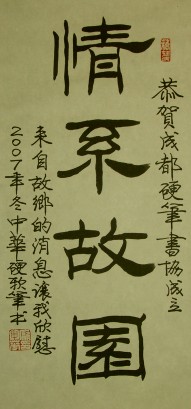 恭賀成都硬筆書協成立
情系故園
来自故鄉的消息讓我欣慰
2007年冬中華硬軟筆书